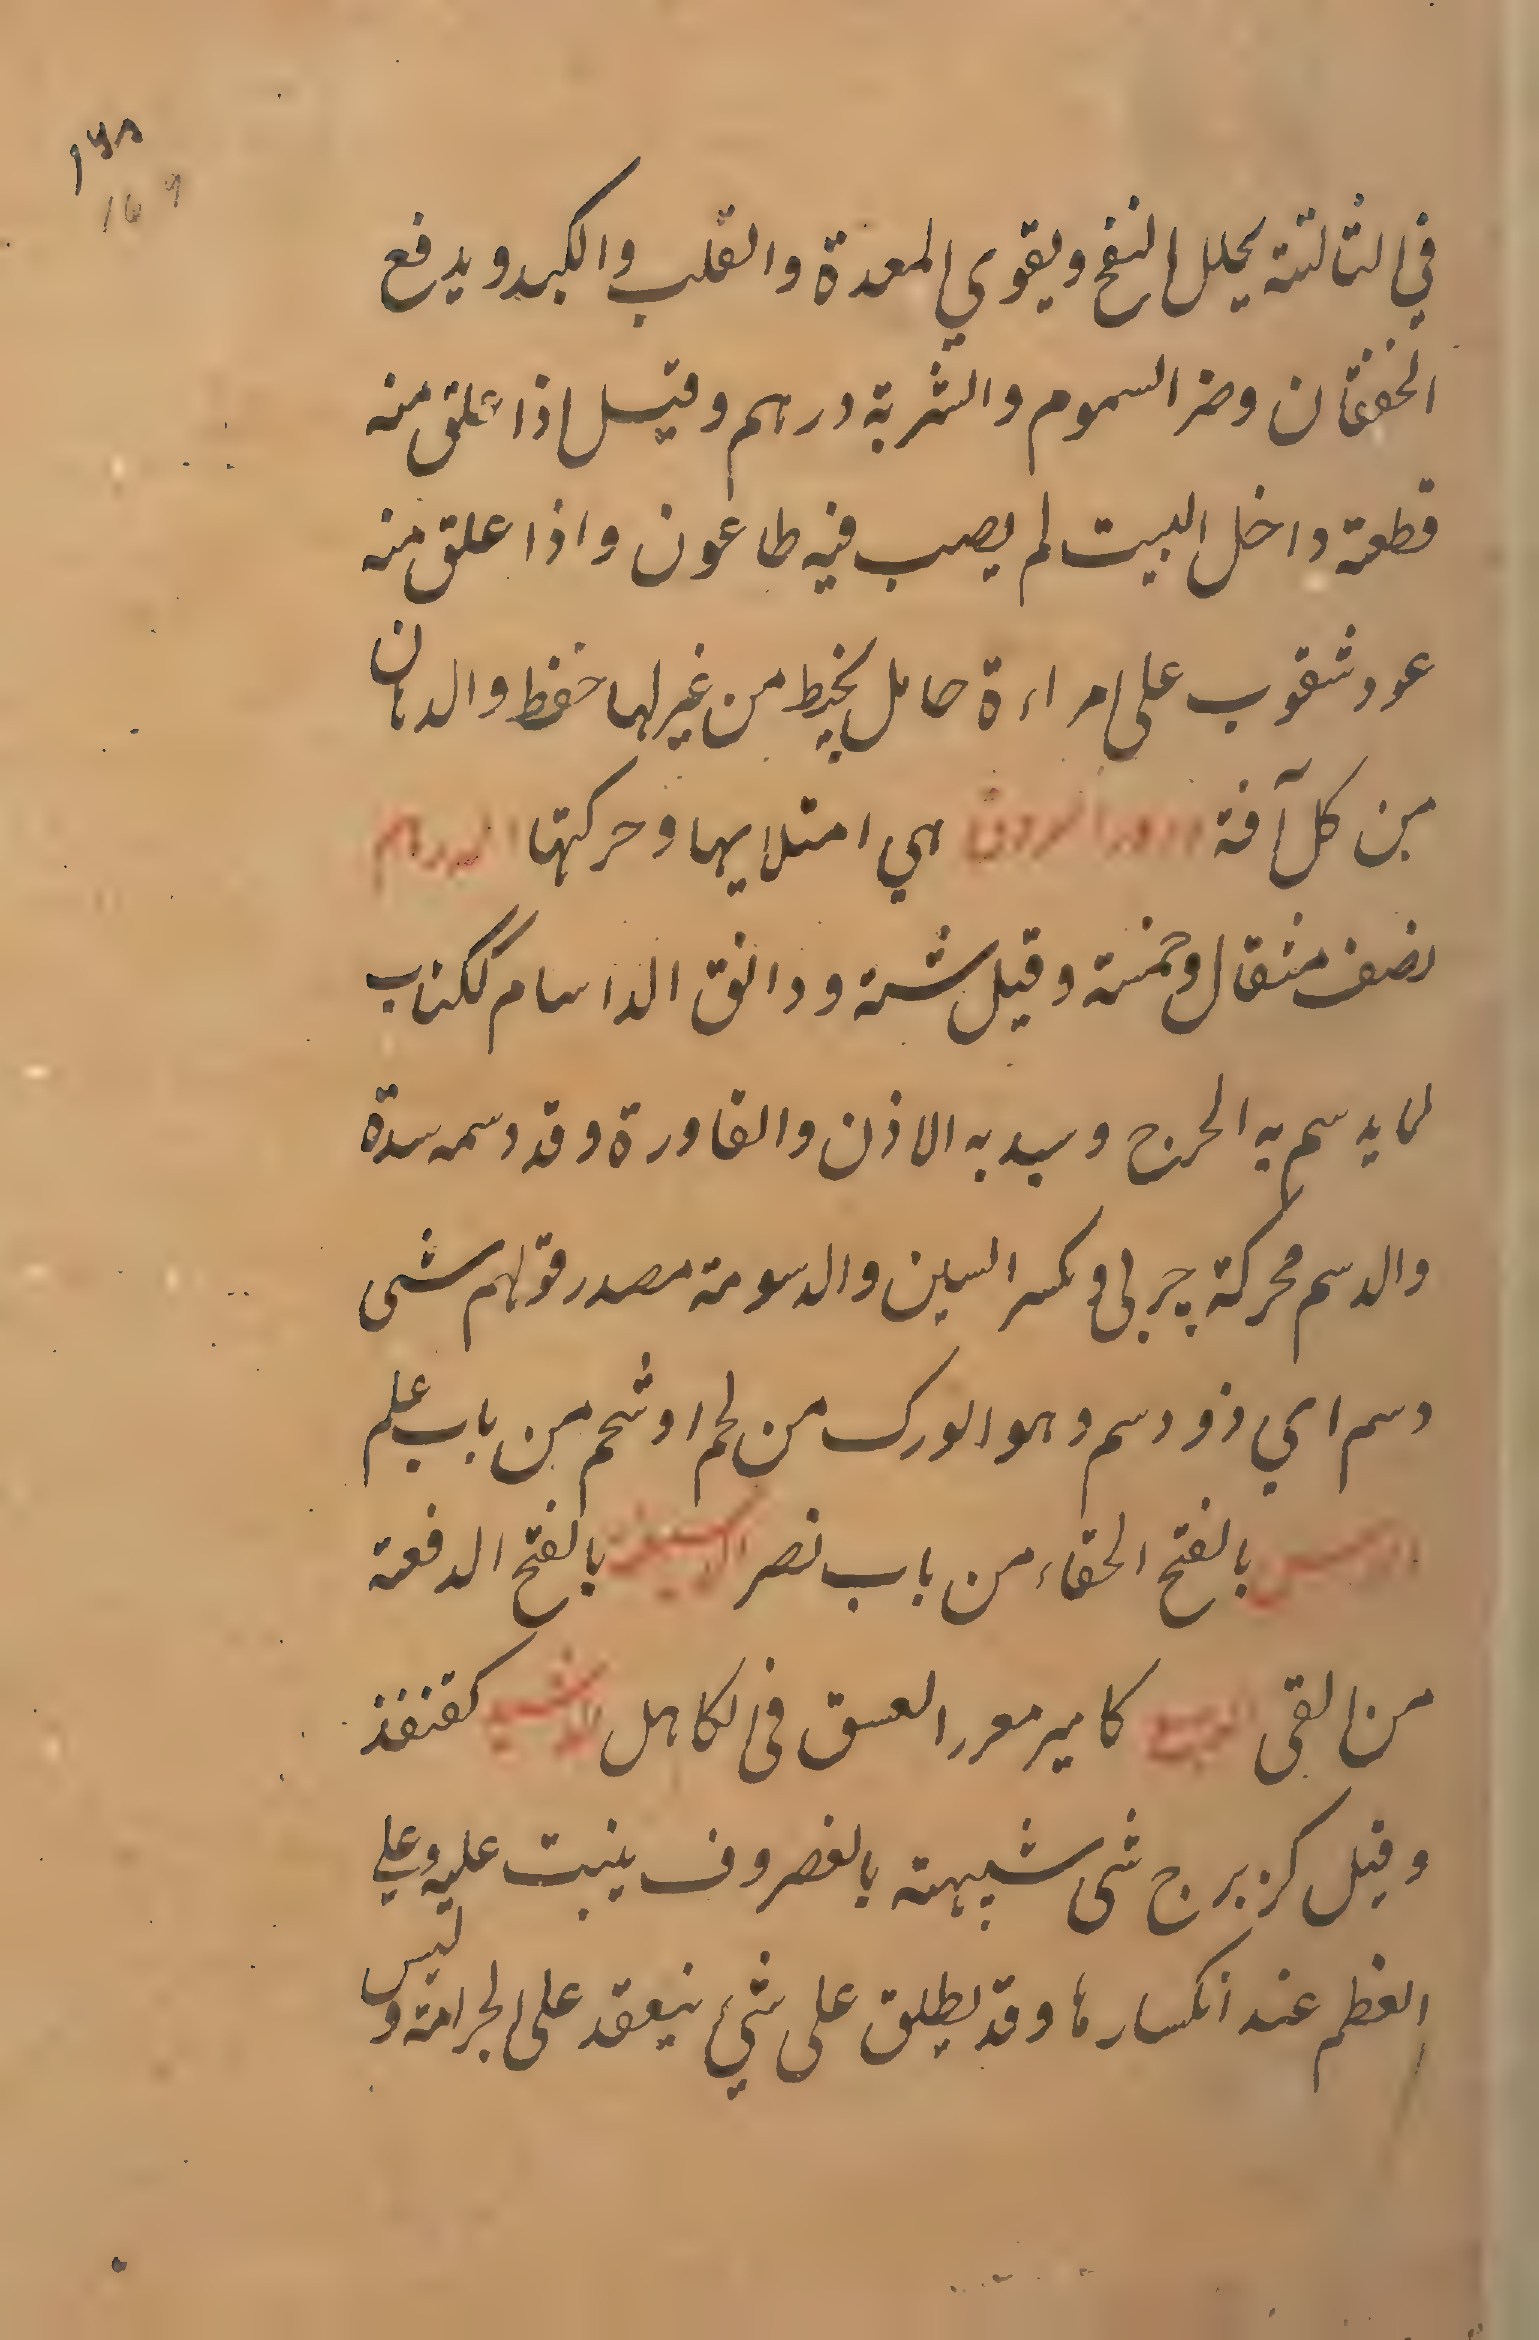 ١٦٨
169
في الثالثة يحلل النفخ ويقوي المعدة والقلب والكبد ويدفع
الخفقان وضر السموم والشربة درهم وقيل اذا علق منه
قطعة داخل البيت لم يصب فيه طاعون واذا علق منه
عود شقوب على امراءة حامل بخيط من غيرلها حفظ والدهان
من كل آفة درور العروق هي امتلايها وحركتها الدرهم
نصف مثقال وخمسة وقيل ستة ودانق الداسام ككتاب
لما يدسم به الجرح وسيد به الاذن والقاورة وقد دسمه سدة
والدسم محركة چربى وبكسر السين والدسومة مصدر قولهم شى
دسم اي ذو دسم وهو الورك من لحم او شحم من باب علم
بالفتح الحقاء من باب نصر بالفتح الدفعة
من القى كامير معرر العسق فى الكاهل كقنفذ
وقيل كزبرج شى شبيهة بالغصروف ينبت عليه وعلي
العظم عند انكسارها وقد يطلق على شئ ينعقد على الجرامة وليس